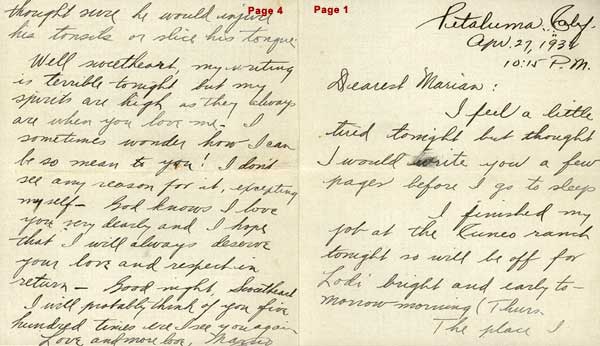 Page 4
thought sure he would injure
his tonsils or slice his tongue.
Well sweetheart, my writing
is terrible tonight but my
spirits are high as they always
are when you love me - I
sometimes wonder how I can
be so mean to you! I don't
see any reason for it, excepting
myself - God knows I love
you very dearly and I hope
that I will always deserve
your love and respect in
return - Good night, Sweetheart
I will probably think of you five
hundred times ere I see you again
Love and more love,
Page 1
Petaluma, Calif.
Apr. 27, 193
10:15 P.M.
Dearest Marian:
I feel a little
tired tonight but thought
I would write you a few
pages before I go to sleep
I finished my
job at the Cuneo ranch
tonight so will be off for
Lodi bright and early to-
morrow morning (Thurs.
The place I